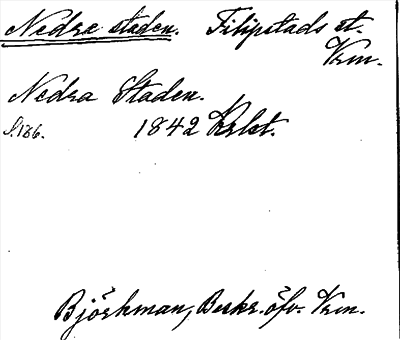 Nedre staden. Filipstads st.
Vrm.
Nedra Staden.
S. 136. 1842 Krlst.
Björkman, Beskr. öfv. Vrm.